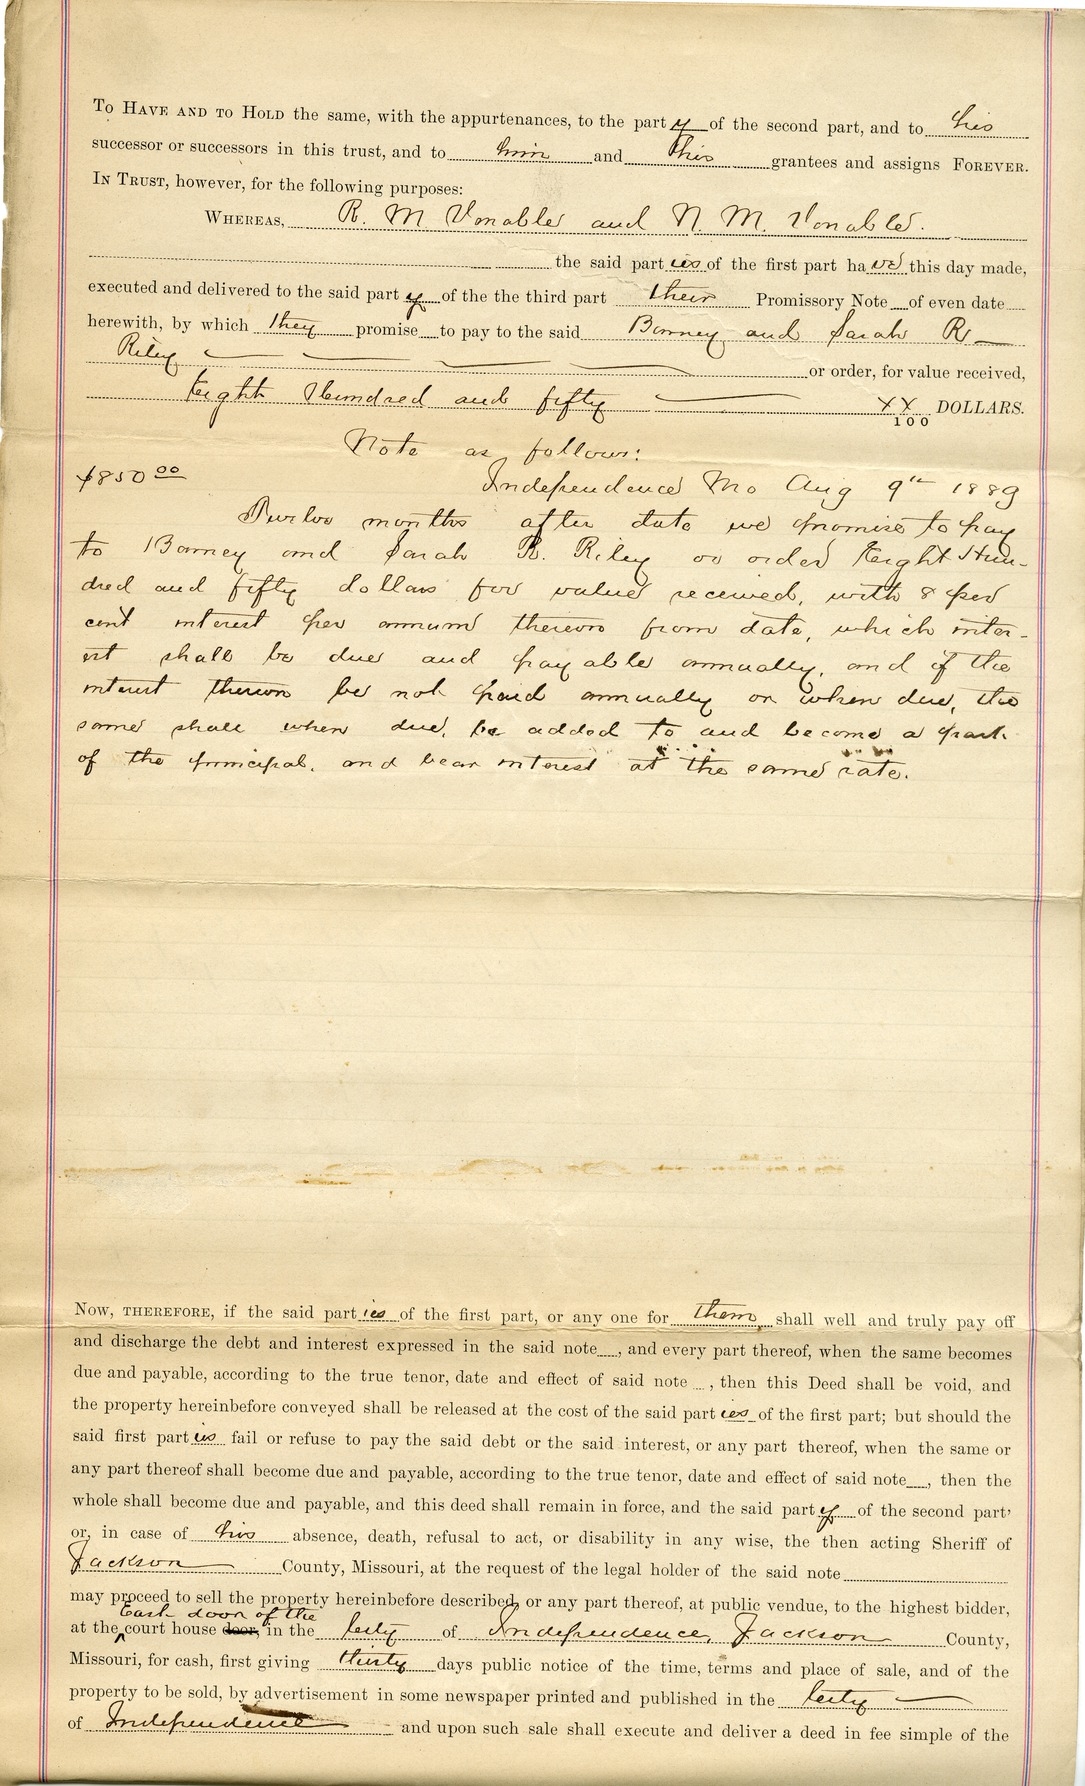 To Have and to Hold the same, with the appurtenances, to the part y of the second part, and to his
successor or successors in this trust, and to him and his grantees and assigns Forever.
In Trust, however, for the following purposes:
Whereas, R. M Vonable and N. M. Vonable.
the said part ies of the first part ha ve this day made,
executed and delivered to the said part y of the the third part their Promissory Note of even date
herewith, by which they promise to pay to the said Barney and Sarah R
Riley or order, for value received,
Eight Hundred and fifty XX/100 DOLLARS.
Note as follows:
$850 00 Independence Mo Aug 9th 1889
Twelve months after date we promise to pay
to Barney and Sarah R. Riley or order Eight Hun-
dred and fifty dollars for value received, with 8 per
cent interest per annum thereon from date, which inter-
est shall be due and payable annually, and if the
interest thereon be not paid annually or when due, the
same shall when due, be added to and become a part
of the principal, and bear interest at the same rate.
Now, therefore, if the said part ies of the first part, or any one for them, shall well and truly pay off
and discharge the debt and interest expressed in the said note , and every part thereof, when the same becomes
due and payable, according to the true tenor, date and effect of said note , then this Deed shall be void, and
the property hereinbefore conveyed shall be released at the cost of the said part ies of the first part; but should the
said first part ies fail or refuse to pay the said debt or the said interest, or any part thereof, when the same or
any part thereof shall become due and payable, according to the true tenor, date and effect of said note , then the
whole shall become due and payable, and this deed shall remain in force, and the said part y of the second part,
or, in case of his absence, death, refusal to act, or disability in any wise, the then acting Sheriff of
Jackson County, Missouri, at the request of the legal holder of the said note
may proceed to sell the property hereinbefore described, or any part thereof, at public vendue, to the highest bidder,
East door of the
at the court house door, in the City of Independence, Jackson County,
Missouri, for cash, first giving thirty days public notice of the time, terms and place of sale, and of the
property to be sold, by advertisement in some newspaper printed and published in the City
of Independence and upon such sale shall execute and deliver a deed in fee simple of the